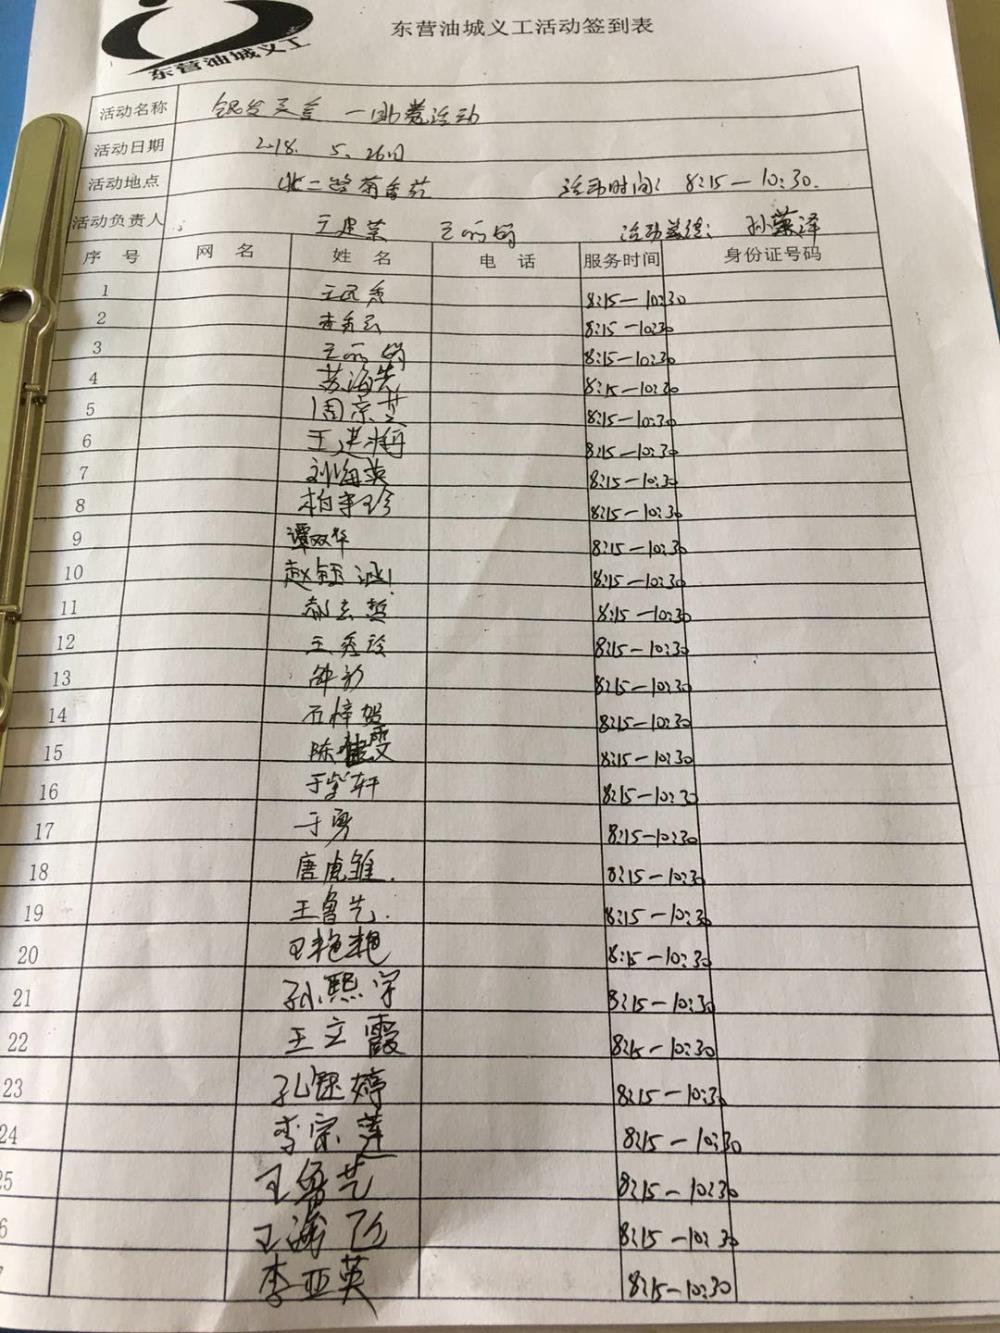 东营油城义工活动签到表
东营油城义工
活动名称 一助老活动
活动日期 2018. 5. 26日
活动地点 北二路菊香苑 活动时间: 8:15—10:30.
活动负责人 王丽娟 孙莹泽
序 号 网 名 姓 名 电 话 服务时间 身份证号码
1 8:15—10:30
2 李秀云 8:15—10:30
3 王丽娟 8:15—10:30
4 苏海先 8:15—10:30
5 周京芝 8:15—10:30
6 王建梅 8:15—10:30
7 刘海英 8:15—10:30
8 柏幸珍 8:15—10:30
9 谭双华 8:15—10:30
10 赵钰涵 8:15—10:30
11 郝玄哲 8:15—10:30
12 王秀玲 8:15—10:30
13 8:15—10:30
14 石梓贺 8:15—10:30
15 陈佳雯 8:15—10:30
16 于紫轩 8:15—10:30
17 于勇 8:15—10:30
18 唐虎雏. 8:15—10:30
19 王鲁先. 8:15—10:30
20 王艳艳 8:15—10:30
21 孙熙宇 8:15—10:30
22 王立霞 8:15—10:30
23 婷 8:15—10:30
24 李宗莲 8:15—10:30
25 王鲁艺 8:15—10:30
6 王瀚飞 8:15—10:30
李亚英 8:15—10:30